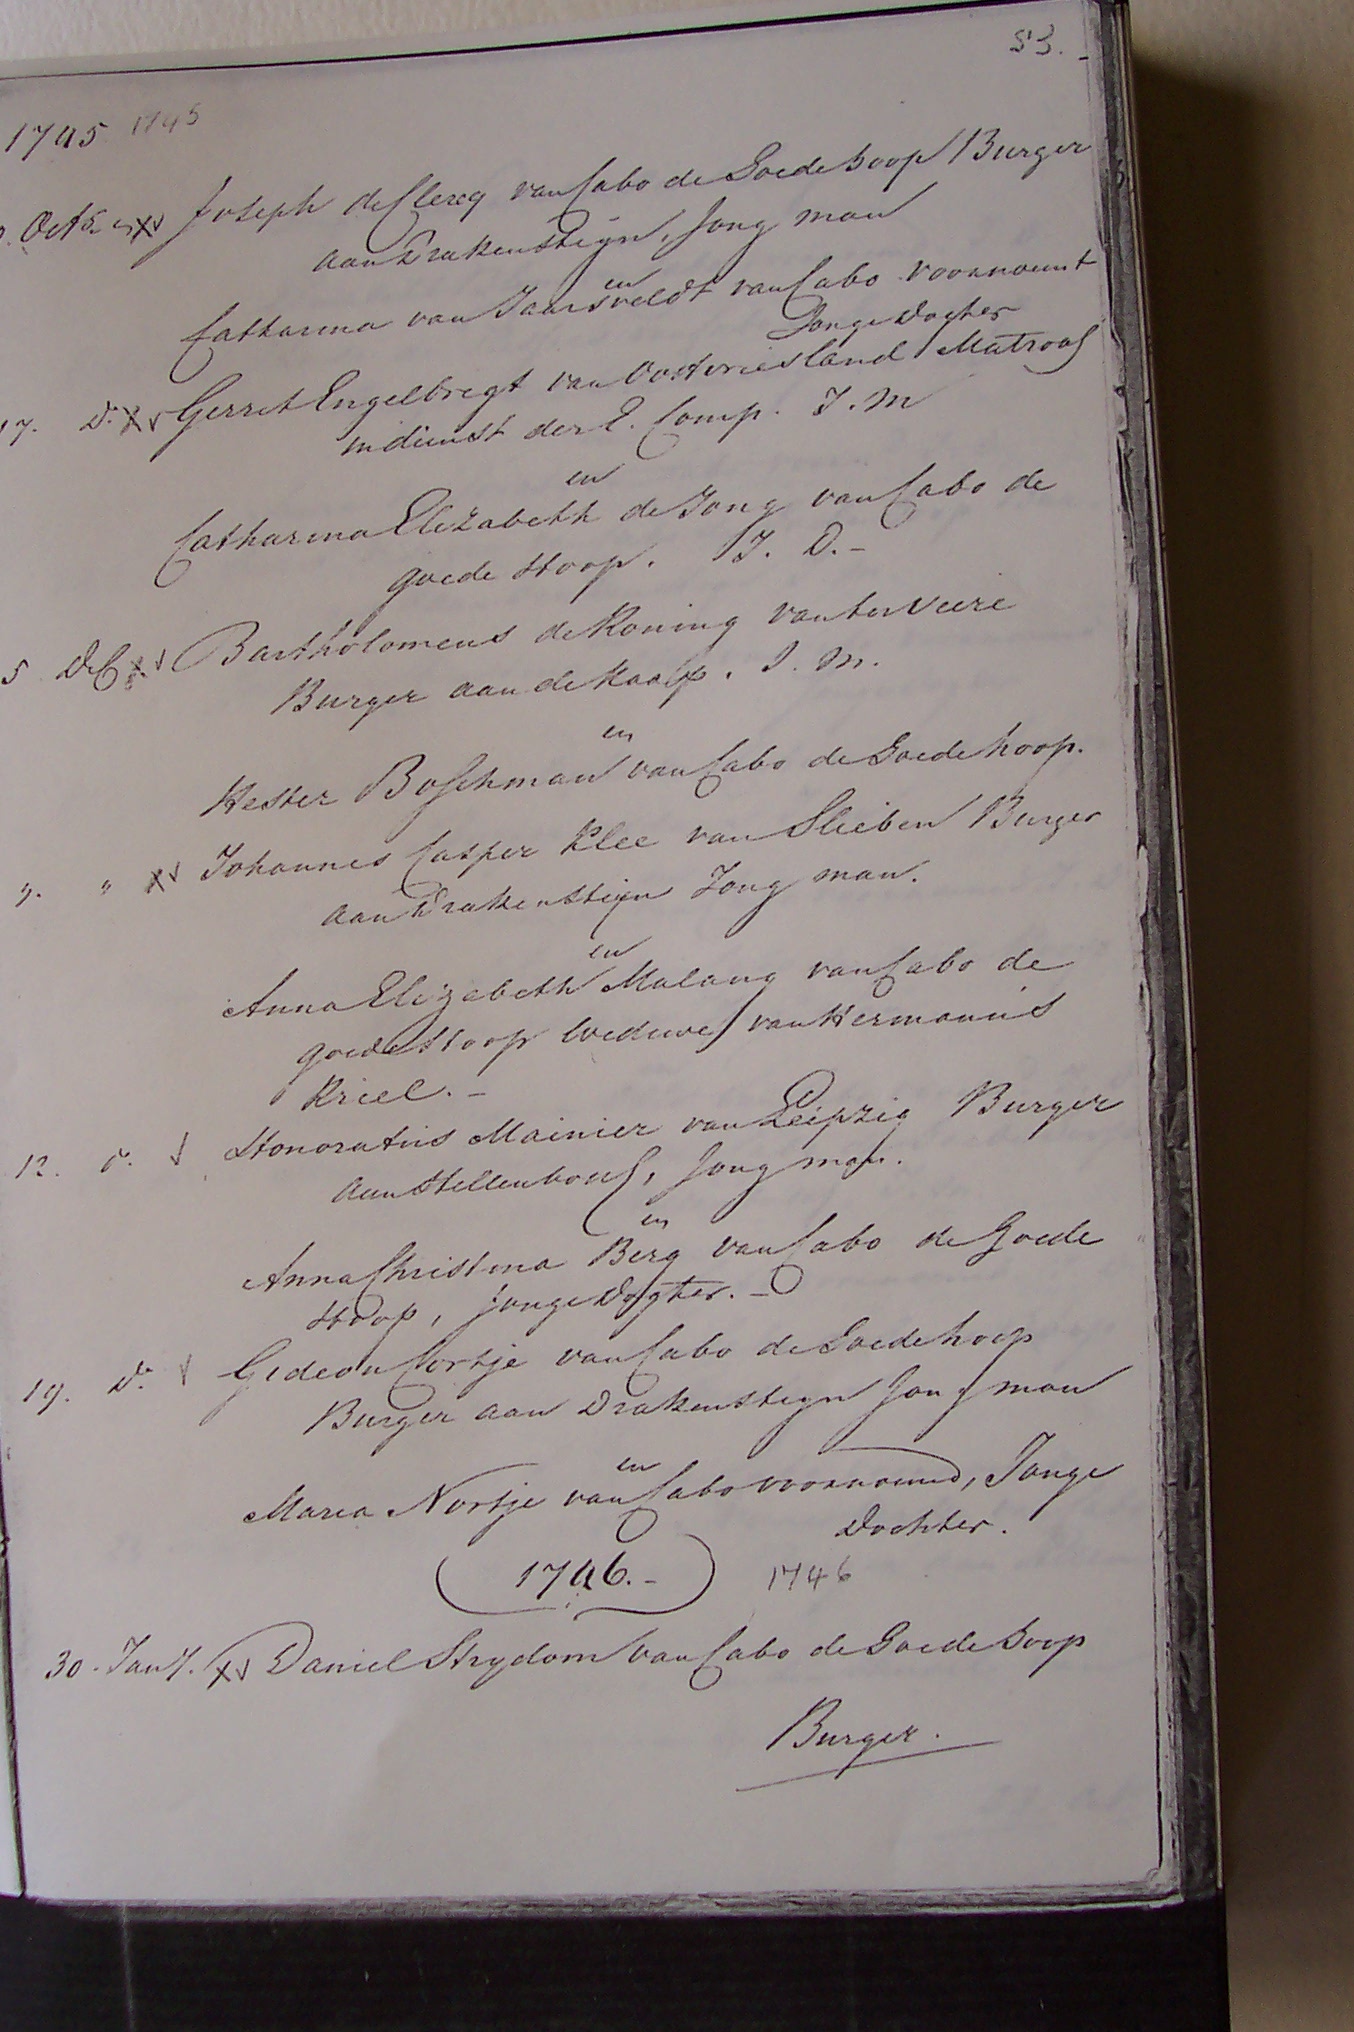 53.
1745 1745
Octb. Joseph de Clercq van Cabo de Goede hoop Burger
aan Drakensteijn, Jong man
en
Catharina van Jaarsveldt van Cabo voornoemt
Jonge Dogter
17. Do. Gerrit Engelbregt van Oostvriesland Matroos
in dienst der E. Comp. J. M
en
Catharina Elizabeth de Jong van Cabo de
goede Hoop. J. D.-
5 Dec Bartholomeus de Koning van ter Veere
Burger aan de Kaap. J. M.
en
Hester Boschman van Cabo de Goede hoop.
" Johannes Casper Klee van Slieben Burger
aan Drakensteijn Jong man.
en
Anna Elizabeth Malang van Cabo de
goede Hoop Weduwe van Hermanus
Kriel.-
12. do. Honoratus Mainier van Leipzig Burger
aan Stellenbosch, Jong man.
en
Anna Christina Berg van Cabo de Goede
Hoop, jonge Dogter.-
19. Do. Gideon Cortje van Cabo de Goede hoop
Burger aan Drakensteyn Jong man
en
Maria Nortje van Cabo voornoemd, Jonge
Dochter.
1746.- 1746
30. Jany. Daniel Strydom van Cabo de Goede hoop
Burger.